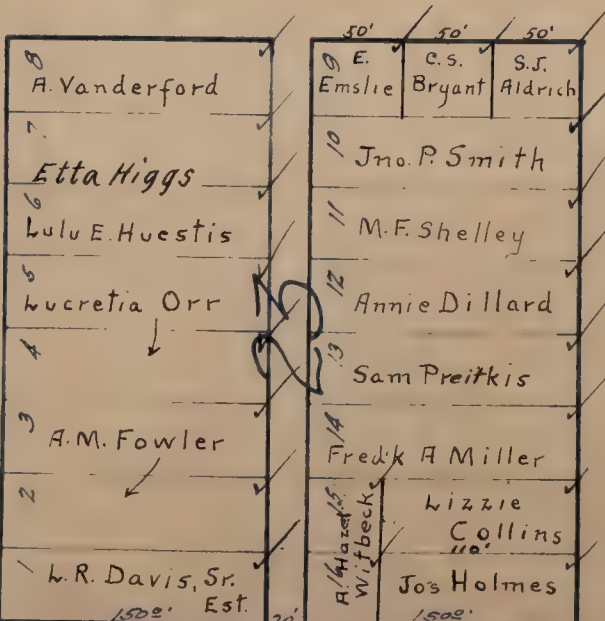 8
A. Vanderford
7
Etta Higgs
6
Lulu E. Huestis
5
Lucretia Orr
4
3
A. M. Fowler
2
1
L. R. Davis, Sr.
Est.
150º'
20'
50' 50' 50'
9
E.
Emslie
C. S.
Bryant
S. J.
Aldrich
10
Jno. P. Smith
11
M. F. Shelley
12
Annie Dillard
13
Sam Preitkis
14
Fred'k A Miller
15
16
A. Hazel
Witbeck
Lizzie
Collins
110'
Jos Holmes
150º'